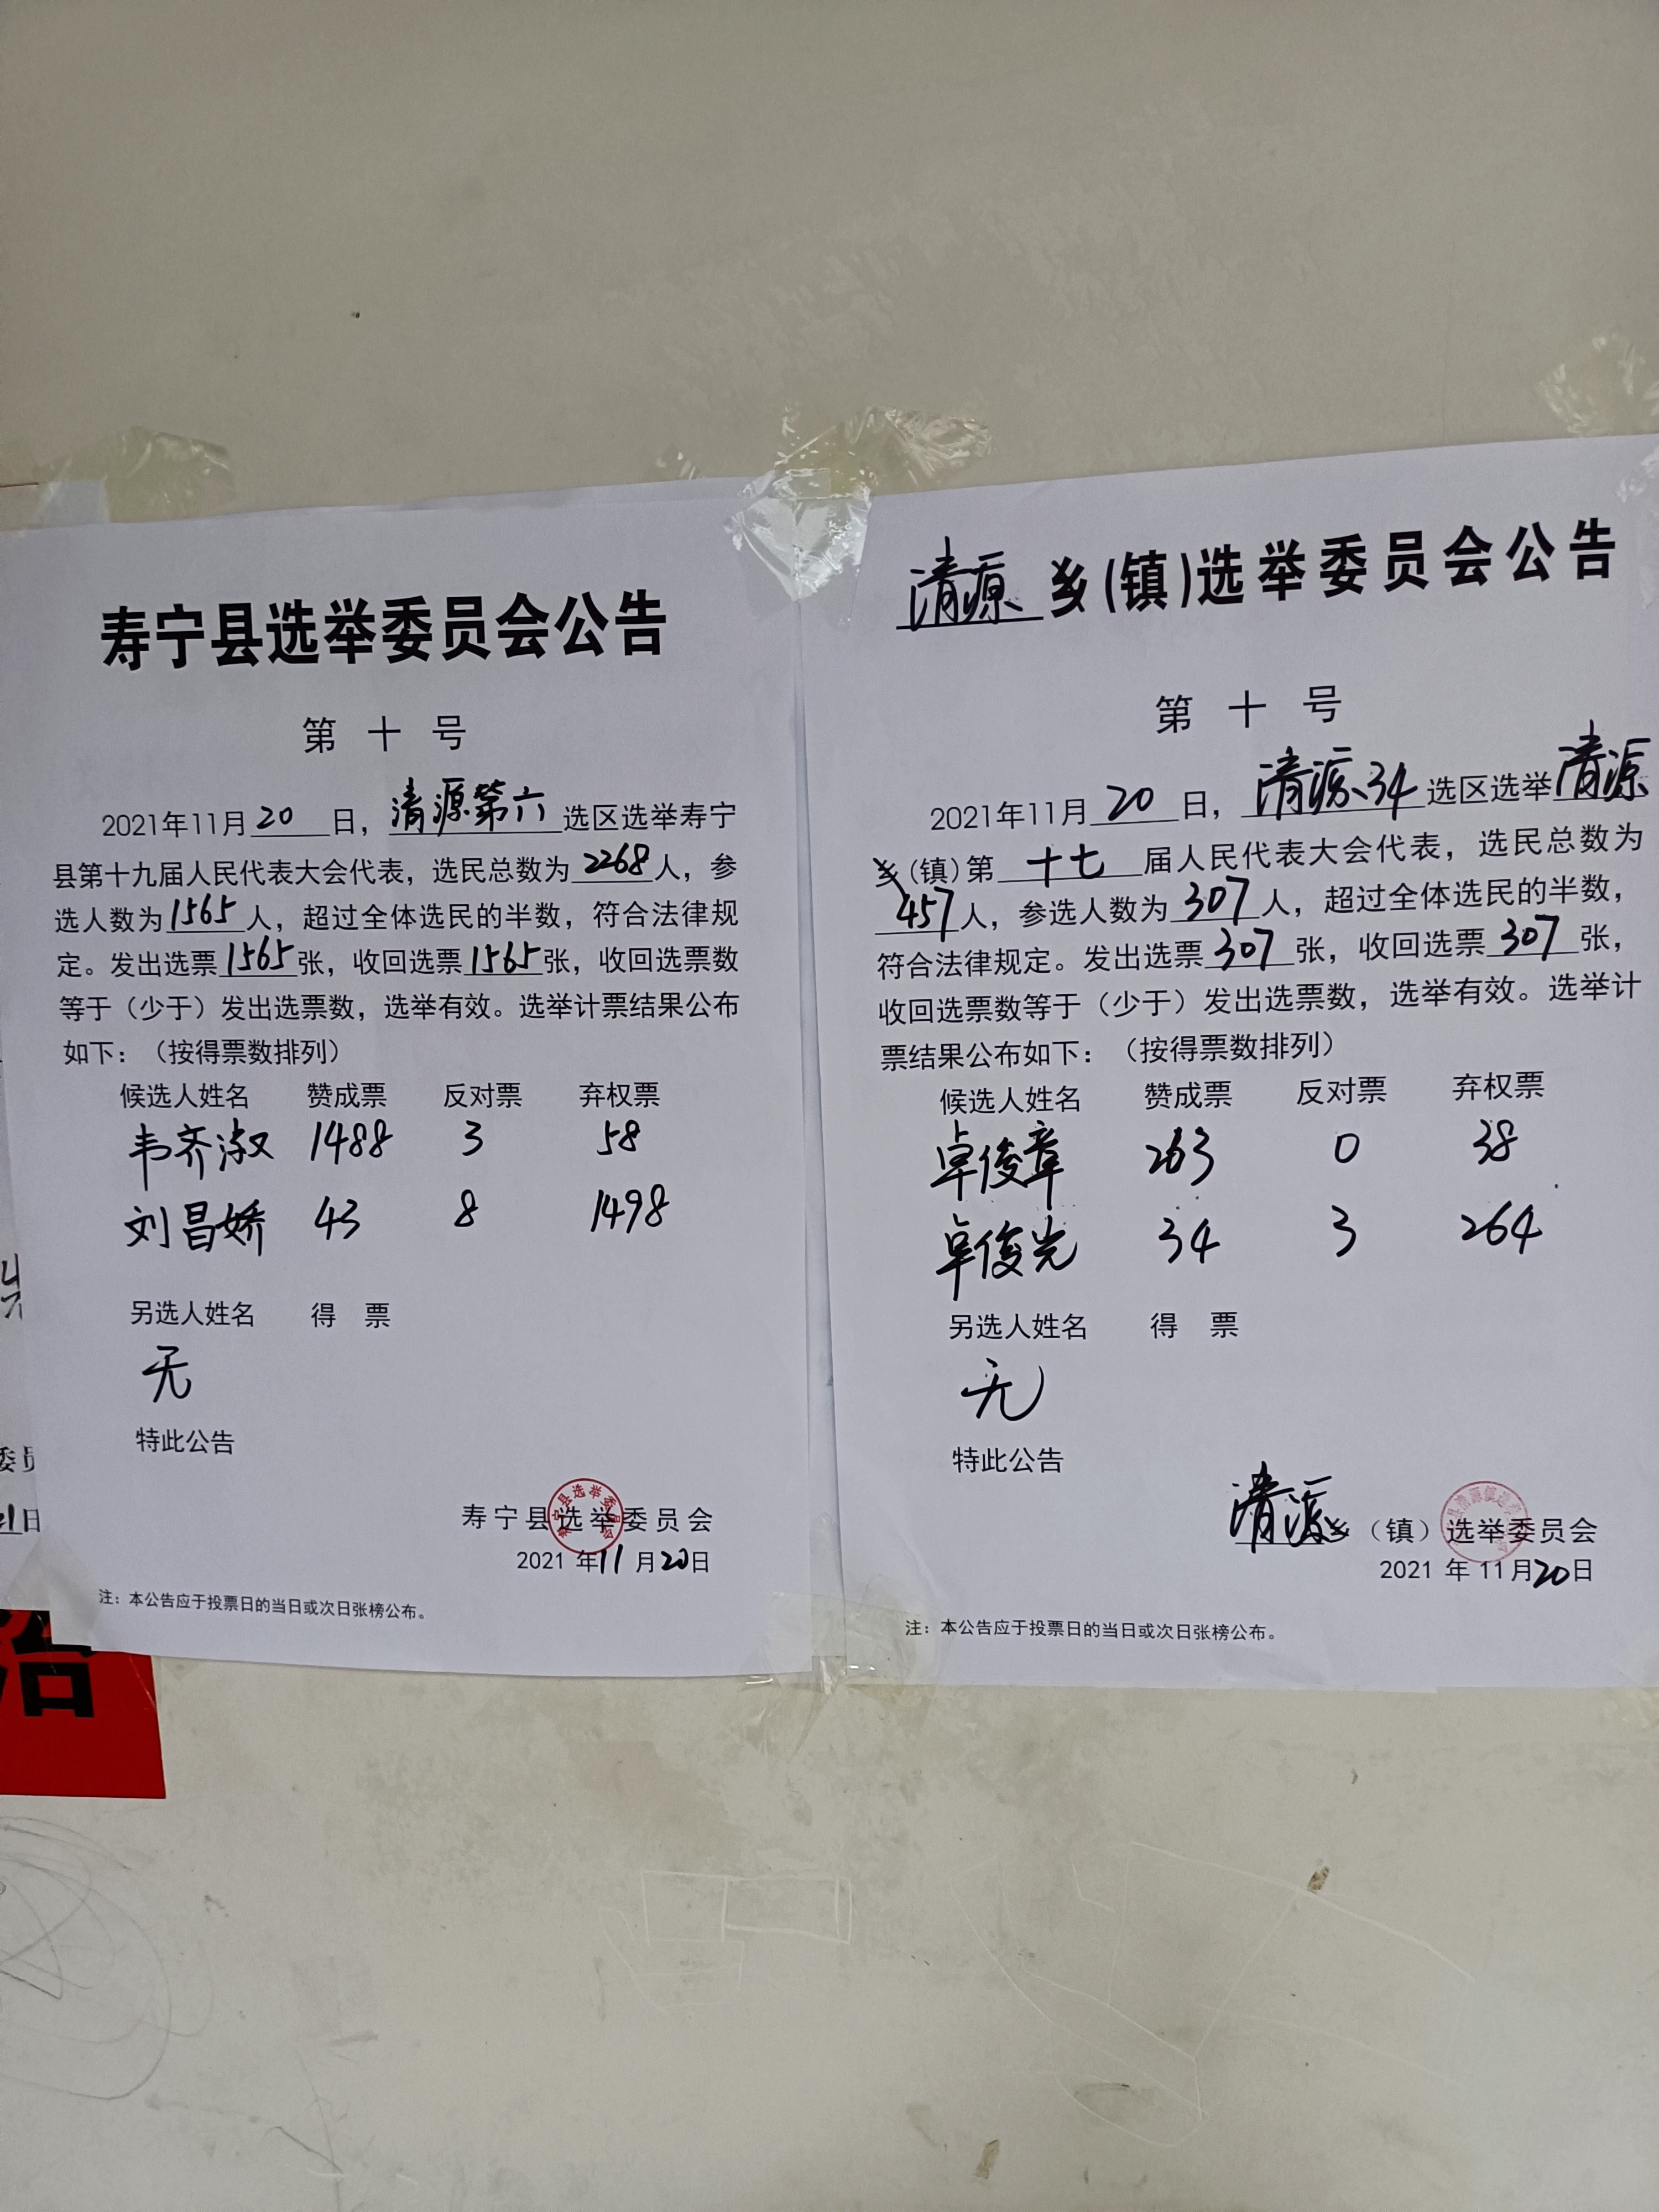 寿宁县选举委员会公告
第 十 号
2021年11月20日，清源第六选区选举寿宁
县第十九届人民代表大会代表，选民总数为2268人，参
选人数为1565人，超过全体选民的半数，符合法律规
定。发出选票1565张，收回选票1565张，收回选票数
等于（少于）发出选票数，选举有效。选举计票结果公布
如下：（按得票数排列）
候选人姓名 赞成票 反对票 弃权票
韦齐淑 1488 3 58
刘昌娇 43 8 1498
另选人姓名 得 票
无
特此公告
寿宁县选举委员会
2021 年11月20日
注：本公告应于投票日的当日或次日张榜公布。
清源乡(镇)选举委员会公告
第 十 号
2021年11月20日，清源34选区选举清源
乡(镇)第十七届人民代表大会代表，选民总数为
457人，参选人数为307人，超过全体选民的半数，
符合法律规定。发出选票307张，收回选票307张，
收回选票数等于（少于）发出选票数，选举有效。选举计
票结果公布如下：（按得票数排列）
候选人姓名 赞成票 反对票 弃权票
卓俊章 263 0 38
卓俊光 34 3 264
另选人姓名 得 票
无
特此公告
清源乡（镇）选举委员会
2021 年 11月20日
注：本公告应于投票日的当日或次日张榜公布。
委员
21日
治